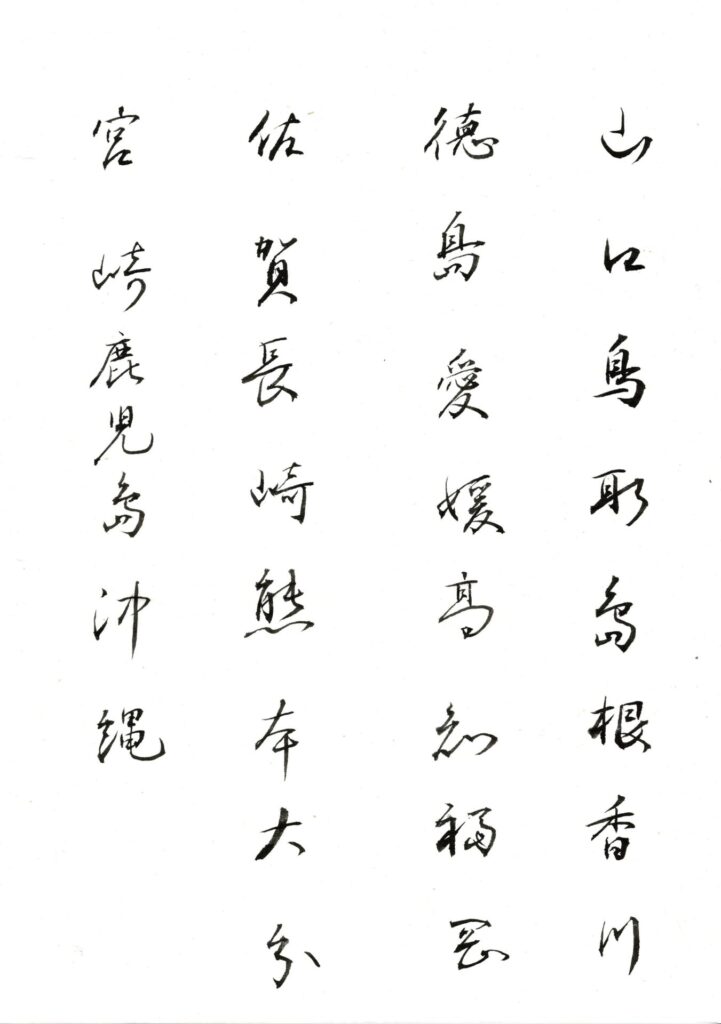 山口鳥取島根香川
徳島愛媛高知福岡
佐賀長崎熊本大分
宮崎鹿児島沖縄